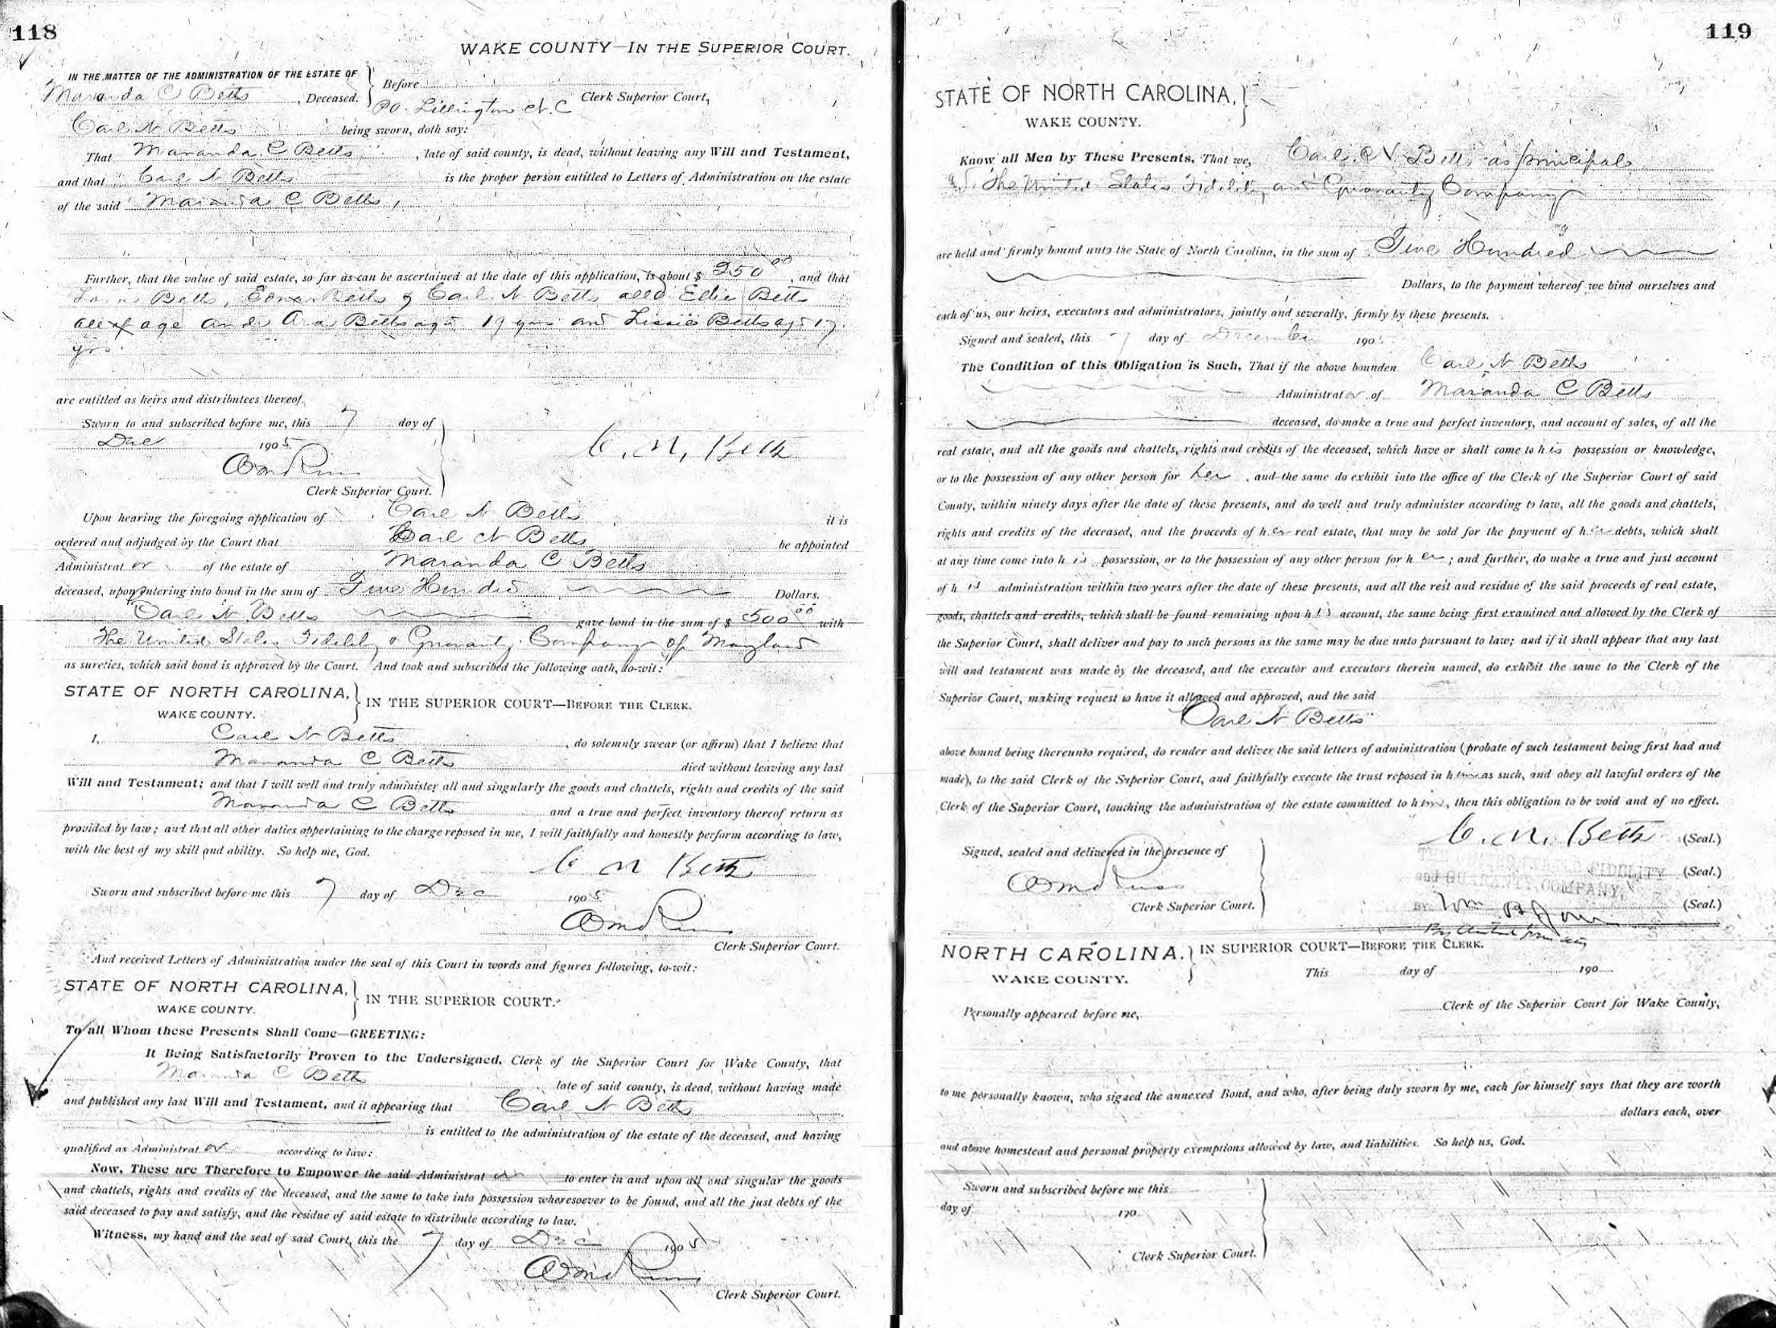 118
WAKE COUNTY—IN THE SUPERIOR COURT.
IN THE MATTER OF THE ADMINISTRATION OF THE ESTATE OF
Maranda C Betts, Deceased.
Before
P.O. Lillington N.C Clerk Superior Court,
Carl N Betts being sworn, doth say:
That Maranda C Betts, late of said county, is dead, without leaving any Will and Testament,
and that Carl N Betts is the proper person entitled to Letters of Administration on the estate
of the said Maranda C Betts,
Further, that the value of said estate, so far as can be ascertained at the date of this application, is about $ 250 00, and that
Betts, Betts & Carl N Betts Ellie Betts
all of age and Ara Betts age 19 yrs and Lissie Betts age 17
yrs.
are entitled as heirs and distributees thereof.
Sworn to and subscribed before me, this 7 day of
Dec 1905
C. N. Betts
Wm Russ
Clerk Superior Court.
Upon hearing the foregoing application of Carl N Betts it is
ordered and adjudged by the Court that Carl N Betts be appointed
Administrator of the estate of Maranda C Betts
deceased, upon entering into bond in the sum of Five Hundred Dollars.
Carl N Betts gave bond in the sum of $ 500 00 with
The United States Fidelity & Guaranty Company of Maryland
as sureties, which said bond is approved by the Court. And took and subscribed the following oath, to-wit:
STATE OF NORTH CAROLINA,
WAKE COUNTY.
IN THE SUPERIOR COURT—BEFORE THE CLERK.
I, Carl N Betts, do solemnly swear (or affirm) that I believe that
Maranda C Betts died without leaving any last
Will and Testament; and that I will well and truly administer all and singularly the goods and chattels, rights and credits of the said
Maranda C Betts and a true and perfect inventory thereof return as
provided by law; and that all other duties appertaining to the charge reposed in me, I will faithfully and honestly perform according to law,
with the best of my skill and ability. So help me, God.
C N Betts
Sworn and subscribed before me this 7 day of Dec 1905
Wm Russ
Clerk Superior Court.
And received Letters of Administration under the seal of this Court in words and figures following, to-wit:
STATE OF NORTH CAROLINA,
WAKE COUNTY.
IN THE SUPERIOR COURT.
To all Whom these Presents Shall Come—GREETING:
It Being Satisfactorily Proven to the Undersigned, Clerk of the Superior Court for Wake County, that
Maranda C Betts late of said county, is dead, without having made
and published any last Will and Testament, and it appearing that Carl N Betts
is entitled to the administration of the estate of the deceased, and having
qualified as Administrator according to law:
Now, These are Therefore to Empower the said Administrator to enter in and upon all and singular the goods
and chattels, rights and credits of the deceased, and the same to take into possession wheresoever to be found, and all the just debts of the
said deceased to pay and satisfy, and the residue of said estate to distribute according to law.
Witness, my hand and the seal of said Court, this the 7 day of Dec 1905
Wm Russ
Clerk Superior Court.
119
STATE OF NORTH CAROLINA,
WAKE COUNTY.
Know all Men by These Presents, That we, Carl N Betts as principals
The United States Fidelity and Guaranty Company
are held and firmly bound unto the State of North Carolina, in the sum of Five Hundred
Dollars, to the payment whereof we bind ourselves and
each of us, our heirs, executors and administrators, jointly and severally, firmly by these presents.
Signed and sealed, this 7 day of December 190
The Condition of this Obligation is Such, That if the above bounden Carl N Betts
Administrator of Maranda C Betts
deceased, do make a true and perfect inventory, and account of sales, of all the
real estate, and all the goods and chattels, rights and credits of the deceased, which have or shall come to his possession or knowledge,
or to the possession of any other person for her, and the same do exhibit into the office of the Clerk of the Superior Court of said
County, within ninety days after the date of these presents, and do well and truly administer according to law, all the goods and chattels,
rights and credits of the deceased, and the proceeds of her real estate, that may be sold for the payment of her debts, which shall
at any time come into his possession, or to the possession of any other person for her; and further, do make a true and just account
of his administration within two years after the date of these presents, and all the rest and residue of the said proceeds of real estate,
goods, chattels and credits, which shall be found remaining upon his account, the same being first examined and allowed by the Clerk of
the Superior Court, shall deliver and pay to such persons as the same may be due unto pursuant to law; and if it shall appear that any last
will and testament was made by the deceased, and the executor and executors therein named, do exhibit the same to the Clerk of the
Superior Court, making request to have it allowed and approved, and the said
Carl N Betts
above bound being thereunto required, do render and deliver the said letters of administration (probate of such testament being first had and
made), to the said Clerk of the Superior Court, and faithfully execute the trust reposed in him as such, and obey all lawful orders of the
Clerk of the Superior Court, touching the administration of the estate committed to him, then this obligation to be void and of no effect.
C. N. Betts (Seal.)
Signed, sealed and delivered in the presence of
FIDELITY (Seal.)
GUARANTY COMPANY,
Wm Russ
Clerk Superior Court.
BY (Seal.)
NORTH CAROLINA.
WAKE COUNTY.
IN SUPERIOR COURT—BEFORE THE CLERK.
This day of 190
Clerk of the Superior Court for Wake County,
Personally appeared before me,
to me personally known, who signed the annexed Bond, and who, after being duly sworn by me, each for himself says that they are worth
dollars each, over
and above homestead and personal property exemptions allowed by law, and liabilities. So help us, God.
Sworn and subscribed before me this
day of 190
Clerk Superior Court.